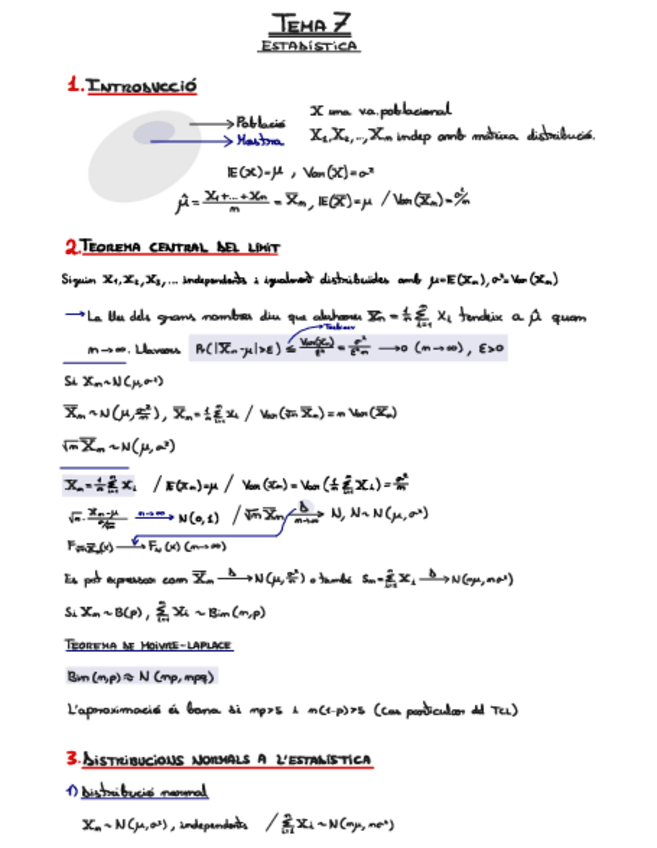 TEMA 7
ESTADÍSTICA
1. INTRODUCCIÓ
→ Població
→ Mostra
X una v.a. poblacional
X₁, X₂, ..., Xₙ indep amb mateixa distribució.
E(X)=μ , Var(X)=σ²
μ̂ = (X₁+...+Xₙ)/n = X̄ₙ, E(X̄)=μ / Var(X̄ₙ)=σ²/n
2. TEOREMA CENTRAL DEL LÍMIT
Siguin X₁, X₂, X₃, ... independents i igualment distribuïdes amb μ=E(Xₙ), σ²=Var(Xₙ)
→ La llei dels grans nombres diu que aleshores X̄ₙ = 1/n Σᵢ₌₁ⁿ Xᵢ tendeix a μ̂ quan
n→∞. Llavors Pr(|X̄ₙ-μ|>ε) ≤ Var(X̄ₙ)/ε² = σ²/ε²n → 0 (n→∞), ε>0
Si Xₙ ~ N(μ,σ²)
X̄ₙ ~ N(μ, σ²/n), X̄ₙ = 1/n Σᵢ₌₁ⁿ xᵢ / Var(√n X̄ₙ) = n Var(X̄ₙ)
√n X̄ₙ ~ N(μ,σ²)
X̄ₙ = 1/n Σᵢ₌₁ⁿ Xᵢ / E(X̄ₙ)=μ / Var(X̄ₙ) = Var(1/n Σᵢ₌₁ⁿ Xᵢ) = σ²/n
n→∞ → N(0,1) / √n X̄ₙ →D n→∞ N, N~N(μ,σ²)
→ F_N(x) (n→∞)
Es pot expressar com X̄ₙ →D N(μ, σ²/n) o també Sₙ = Σᵢ₌₁ⁿ Xᵢ →D N(nμ, nσ²)
Si Xₙ ~ B(p), Σᵢ₌₁ⁿ Xᵢ ~ Bin(n,p)
TEOREMA DE MOIVRE-LAPLACE
Bin(n,p) ≈ N(np, npq)
L'aproximació és bona si np>5 i n(1-p)>5 (Cas particular del TCL)
3. DISTRIBUCIONS NORMALS A L'ESTADÍSTICA
1) Distribució normal
Xₙ ~ N(μ,σ²), independents / Σᵢ₌₁ⁿ Xᵢ ~ N(nμ, nσ²)